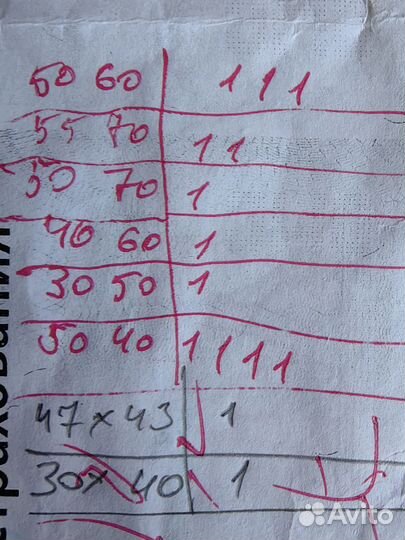 50 60 | 1 1 1
55 70 | 1 1
50 70 | 1
40 60 | 1
30 50 | 1
50 40 | 1 1 1 1
47 x 43 | 1
30 x 40 | 1
трахования
Avito